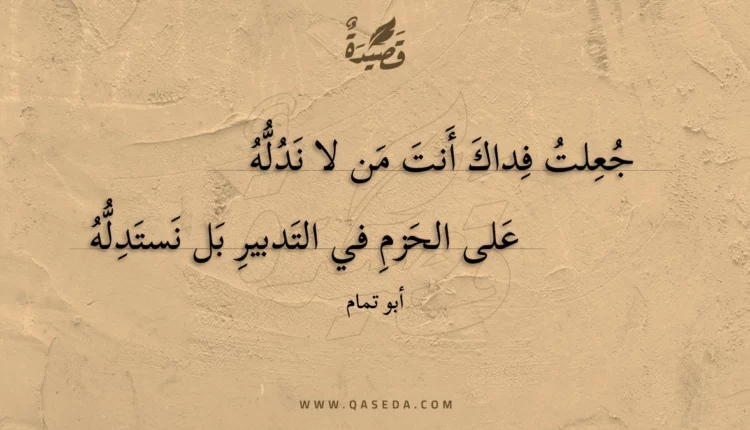 قَصِيدَةٌ
جُعِلتُ فِداكَ أَنتَ مَن لا نَدُلُّهُ
عَلى الحَزمِ في التَدبيرِ بَل نَستَدِلُّهُ
أبو تمام
WWW.QASEDA.COM